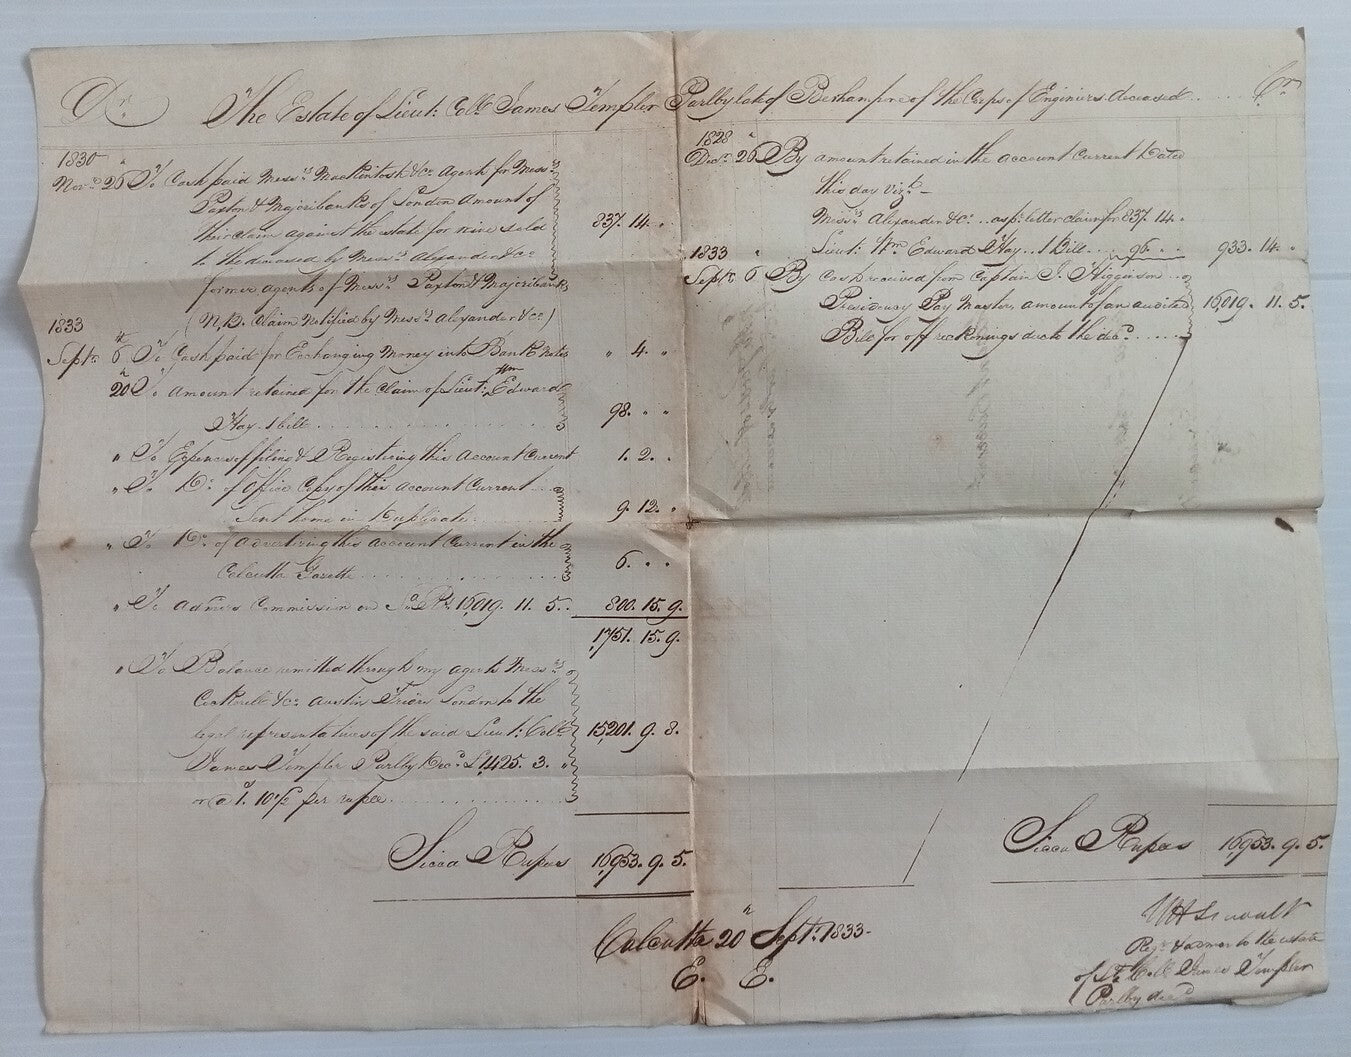 Dr. The Estate of Lieut: Coll. James Templer Parlby late of Berhampore of the Corps of Engineers deceased Cr.
1830
Novr. 26 To Cash paid Messrs. Mackintosh & Co. Agents for Messrs.
Paxton & Majoribanks of London Amount of
their claim against the estate for wine sold
to the deceased by Messrs. Alexander & Co. 837. 14. "
former agents of Messrs. Paxton & Majoribanks
(N.B. Claim Notified by Messrs. Alexander & Co.)
1833
Septr. 6th To Cash paid for Exchanging Money into Bank Notes " 4. "
20th To Amount retained for the claim of Lieut: Wm. Edward
Hay. 1 bill 98. " "
" To Expence of filing & Registering this Account Current 1. 2. "
" To Do. of Office Copy of this Account Current
Sent home in Duplicate 9. 12. "
" To Do. of advertising this Account Current in the
Calcutta Gazette 6. " "
" To Admors Commission on Sa. Rs. 16,019. 11. 5. 800. 15. 9.
1,751. 15. 9.
" To Balance remitted through my agents Messrs.
Cockerell & Co. Austin Friars London to the
legal representatives of the said Lieut: Coll. 15,201. 9. 8.
James Templer Parlby Decd. £1,425. 3. "
or @ 1. 10½ per rupee
Sicca Rupees 16,953. 9. 5.
1828
Decr. 26th By amount retained in the Account Current Dated
this day Vizt. -
Messrs. Alexander & Co. as pr. letter claim for 837. 14. "
Lieut: Wm. Edward Hay 1 Bill 96. " " 933. 14. "
1833
Septr. 6 By Cash received from Captain J. Higginson
Presidency Pay Master, amount of an audited 16,019. 11. 5.
Bill for off reckonings due to the decd.
Sicca Rupees 16,953. 9. 5.
Calcutta 20th Septr. 1833-
E. E.
Regr. & admor to the estate
of Lt. Coll. James Templer
Parlby decd.